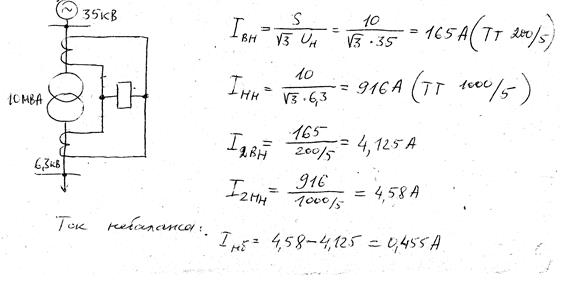 35кВ
10МВА
6,3кВ
I_ВН = S / √3 U_Н = 10 / √3 · 35 = 165 А (ТТ 200/5)
I_НН = 10 / √3 · 6,3 = 916 А (ТТ 1000/5)
I_2ВН = 165 / 200/5 = 4,125 А
I_2НН = 916 / 1000/5 = 4,58 А
Ток небаланса:
I_нб = 4,58 – 4,125 = 0,455 А